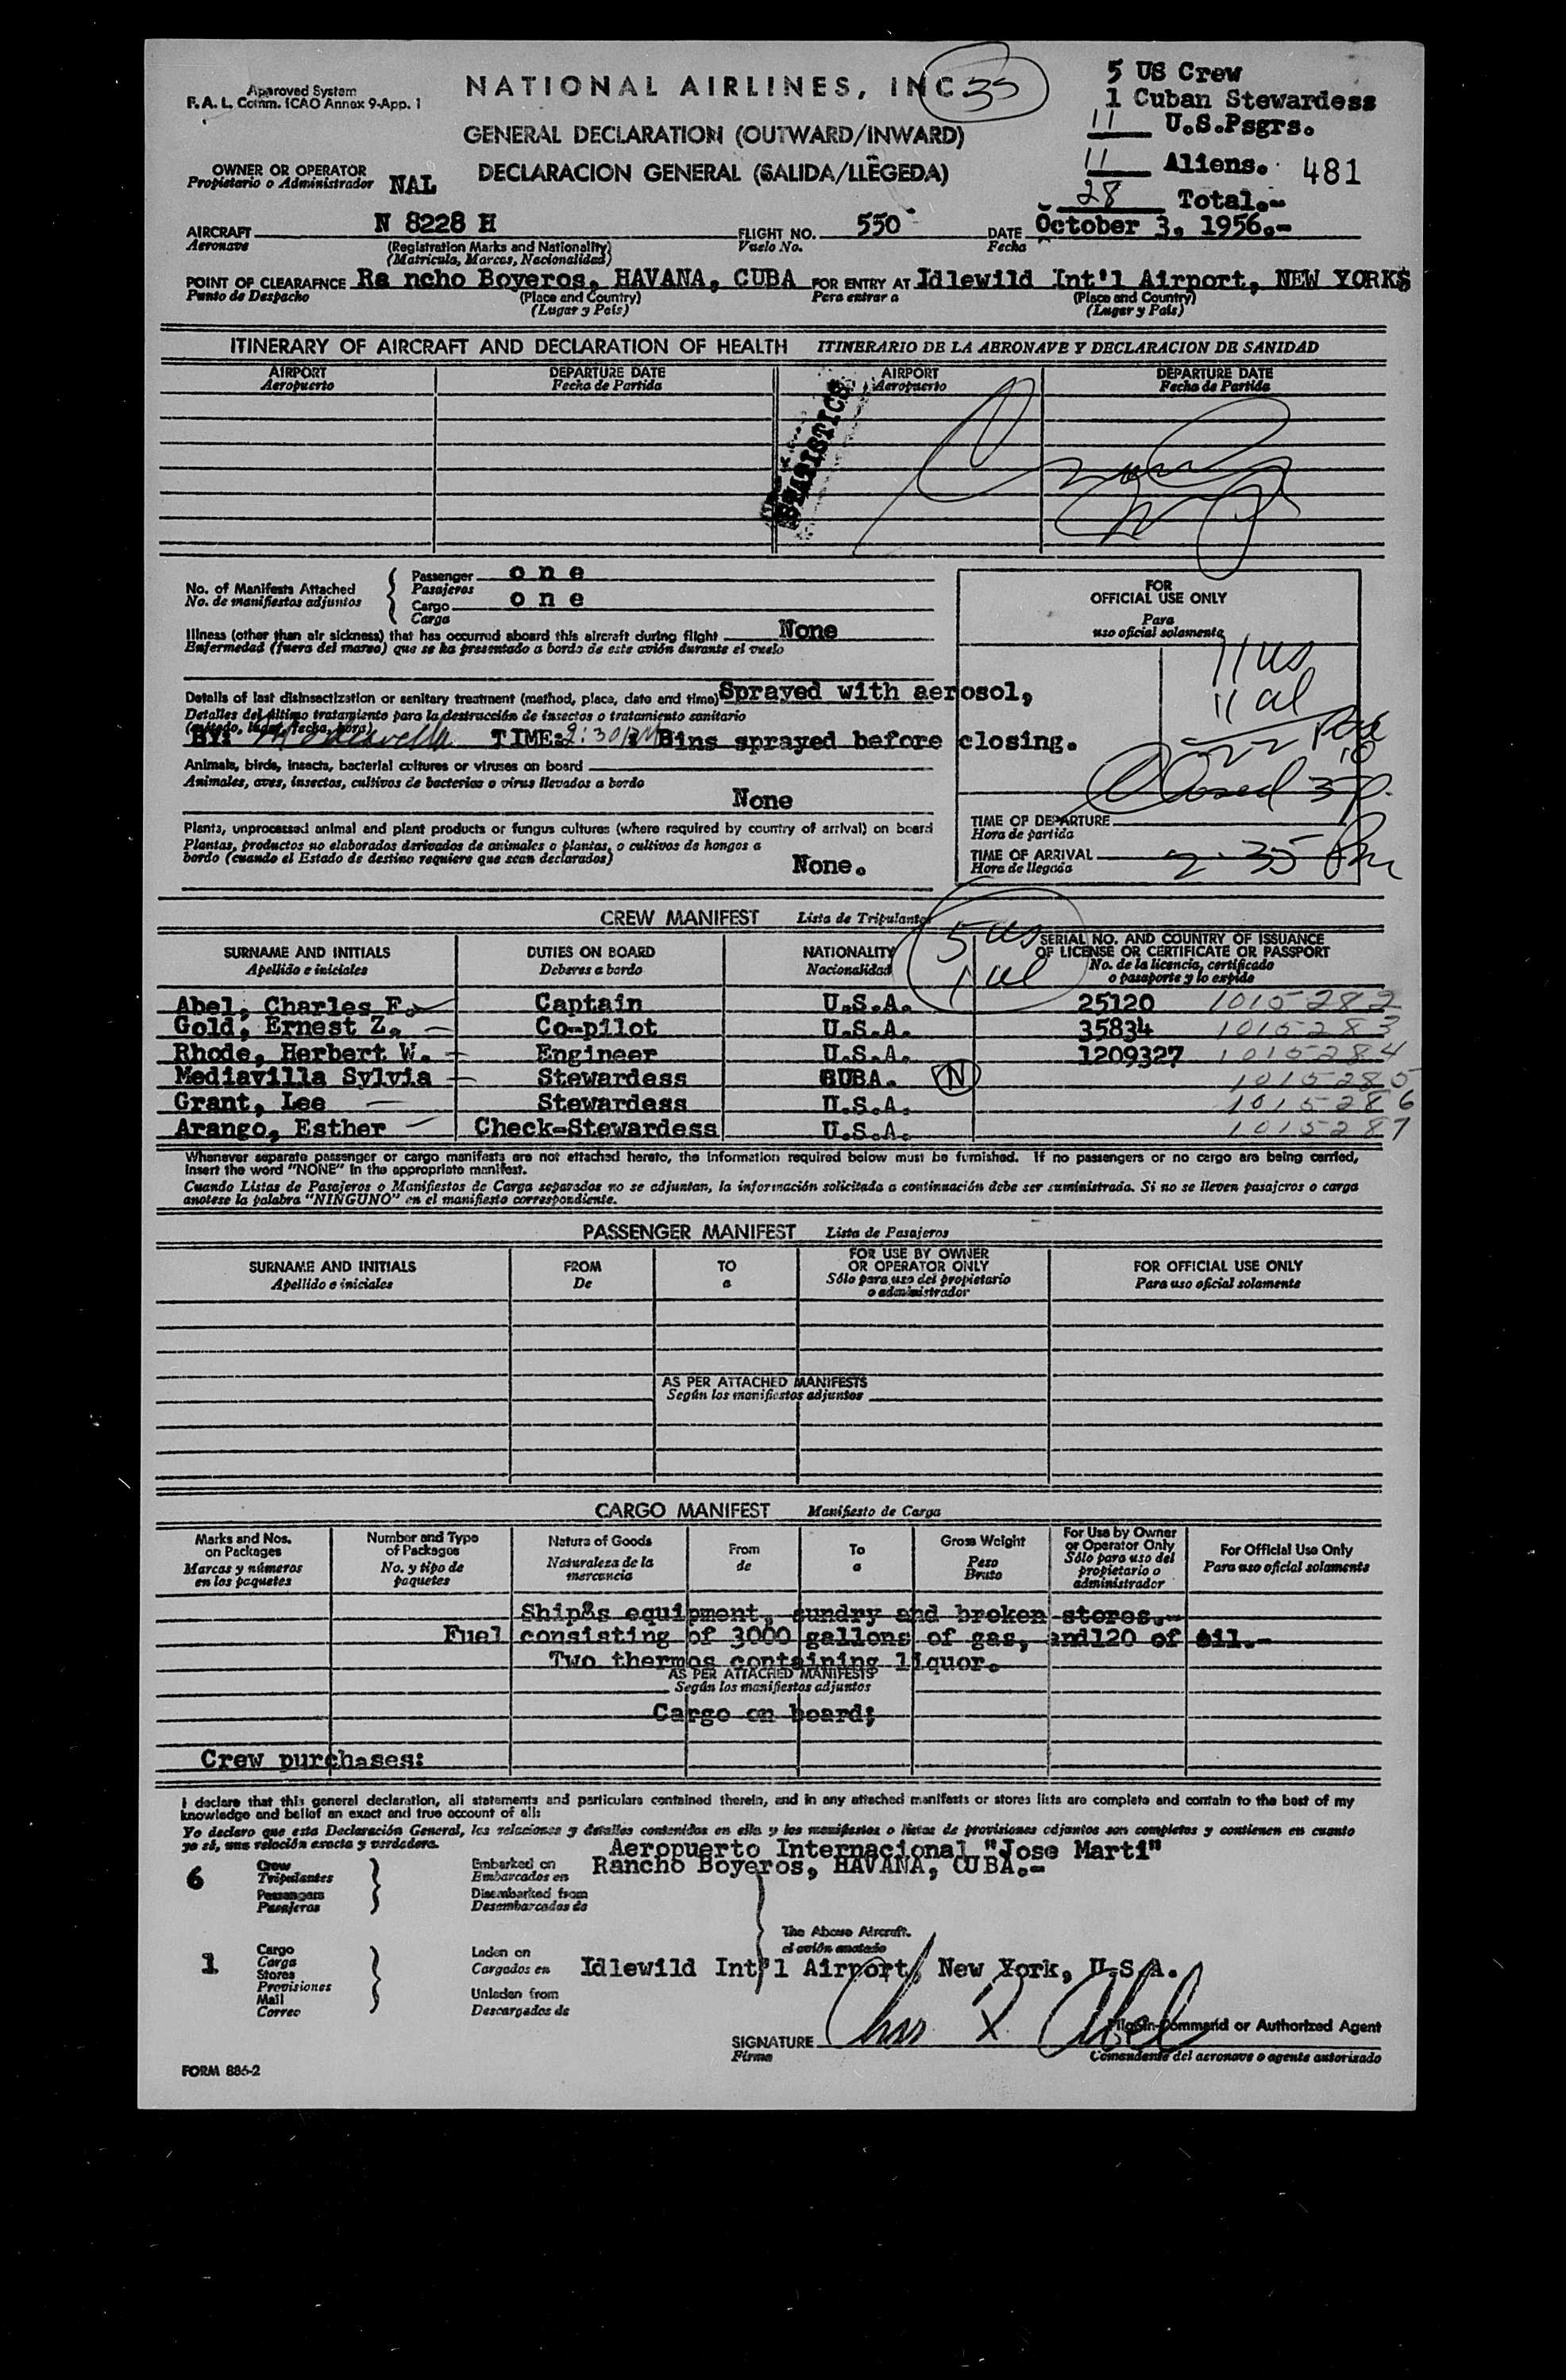 Approved System
F. A. L. Comm. ICAO Annex 9-App. 1
NATIONAL AIRLINES, INC.
35
GENERAL DECLARATION (OUTWARD/INWARD)
DECLARACION GENERAL (SALIDA/LLEGEDA)
5 US Crew
1 Cuban Stewardess
11 U.S.Psgrs.
11 Aliens. 481
28 Total.-
OWNER OR OPERATOR NAL
Propietario o Administrador
AIRCRAFT N 8228 H FLIGHT NO. 550 DATE October 3, 1956.-
Aeronave (Registration Marks and Nationality) Vuelo No. Fecha
(Matricula, Marcas, Nacionalidad)
POINT OF CLEARAFNCE Ra ncho Boyeros, HAVANA, CUBA FOR ENTRY AT Idlewild Int'l Airport, NEW YORKS
Punto de Despacho (Place and Country) Para entrar a (Place and Country)
(Lugar y País) (Lugar y País)
ITINERARY OF AIRCRAFT AND DECLARATION OF HEALTH ITINERARIO DE LA AERONAVE Y DECLARACION DE SANIDAD
AIRPORT DEPARTURE DATE AIRPORT DEPARTURE DATE
Aeropuerto Fecha de Partida Aeropuerto Fecha de Partida
STATISTICS
No. of Manifests Attached Passenger one
No. de manifiestos adjuntos Pasajeros
Cargo one
Carga
Illness (other than air sickness) that has occurred aboard this aircraft during flight None
Enfermedad (fuera del mareo) que se ha presentado a bordo de este avión durante el vuelo
Details of last disinsectization or sanitary treatment (method, place, date and time) Sprayed with aerosol,
Detalles del último tratamiento para la destrucción de insectos o tratamiento sanitario
(método, lugar, fecha, hora)
BY: Mediavilla TIME: 2:30PM Bins sprayed before closing.
Animals, birds, insects, bacterial cultures or viruses on board
Animales, aves, insectos, cultivos de bacterias o virus llevados a bordo
None
Plants, unprocessed animal and plant products or fungus cultures (where required by country of arrival) on board
Plantas, productos no elaborados derivados de animales o plantas, o cultivos de hongos a
bordo (cuando el Estado de destino requiere que sean declarados)
None.
FOR
OFFICIAL USE ONLY
Para
uso oficial solamente
11 us
11 al
22
Closed
TIME OF DEPARTURE
Hora de partida
TIME OF ARRIVAL 2:35 Pm
Hora de llegada
CREW MANIFEST Lista de Tripulantes
5 us
1 al
SURNAME AND INITIALS DUTIES ON BOARD NATIONALITY SERIAL NO. AND COUNTRY OF ISSUANCE
OF LICENSE OR CERTIFICATE OR PASSPORT
Apellido e iniciales Deberes a bordo Nacionalidad No. de la licencia, certificado
o pasaporte y lo expide
Abel, Charles F. Captain U.S.A. 25120 1015282
Gold, Ernest Z. Co-pilot U.S.A. 35834 1015283
Rhode, Herbert W. Engineer U.S.A. 1209327 1015284
Mediavilla Sylvia Stewardess CUBA. N 1015285
Grant, Lee Stewardess U.S.A. 1015286
Arango, Esther Check-Stewardess U.S.A. 1015287
Whenever separate passenger or cargo manifests are not attached hereto, the information required below must be furnished. If no passengers or no cargo are being carried,
insert the word "NONE" in the appropriate manifest.
Cuando Listas de Pasajeros o Manifiestos de Carga separados no se adjuntan, la información solicitada a continuación debe ser suministrada. Si no se lleven pasajeros o carga
anotese la palabra "NINGUNO" en el manifiesto correspondiente.
PASSENGER MANIFEST Lista de Pasajeros
SURNAME AND INITIALS FROM TO FOR USE BY OWNER OR OPERATOR ONLY FOR OFFICIAL USE ONLY
Apellido e iniciales De a Sólo para uso del propietario o administrador Para uso oficial solamente
AS PER ATTACHED MANIFESTS
Según los manifiestos adjuntos
CARGO MANIFEST Manifiesto de Carga
Marks and Nos. on Packages Number and Type of Packages Nature of Goods From To Gross Weight For Use by Owner or Operator Only For Official Use Only
Marcas y números en los paquetes No. y tipo de paquetes Naturaleza de la mercancia de a Peso Bruto Sólo para uso del propietario o administrador Para uso oficial solamente
Ship&s equipment, sundry and broken stores.-
Fuel consisting of 3000 gallons of gas, and120 of oil.-
Two thermos containing liquor.
AS PER ATTACHED MANIFESTS
Según los manifiestos adjuntos
Cargo on board;
Crew purchases:
I declare that this general declaration, all statements and particulars contained therein, and in any attached manifests or stores lists are complete and contain to the best of my
knowledge and belief an exact and true account of all:
Yo declaro que esta Declaración General, las relaciones y detalles contenidos en ella y los manifiestos o listas de provisiones adjuntos son completos y contienen en cuanto
yo sé, una relación exacta y verdadera.
Aeropuerto Internacional "Jose Marti"
6 Crew Embarked on Rancho Boyeros, HAVANA, CUBA.-
Tripulantes Embarcados en
Passengers Disembarked from
Pasajeros Desembarcados de
The Above Aircraft.
el avión anotado
1 Cargo Laden on
Carga Cargados en Idlewild Int'l Airport, New York, U.S.A.
Stores
Provisiones
Mail Unladen from
Correo Descargados de
SIGNATURE Chas F Abel Pilot-in-Command or Authorized Agent
Firma Comandante del aeronave o agente autorizado
FORM 886-2